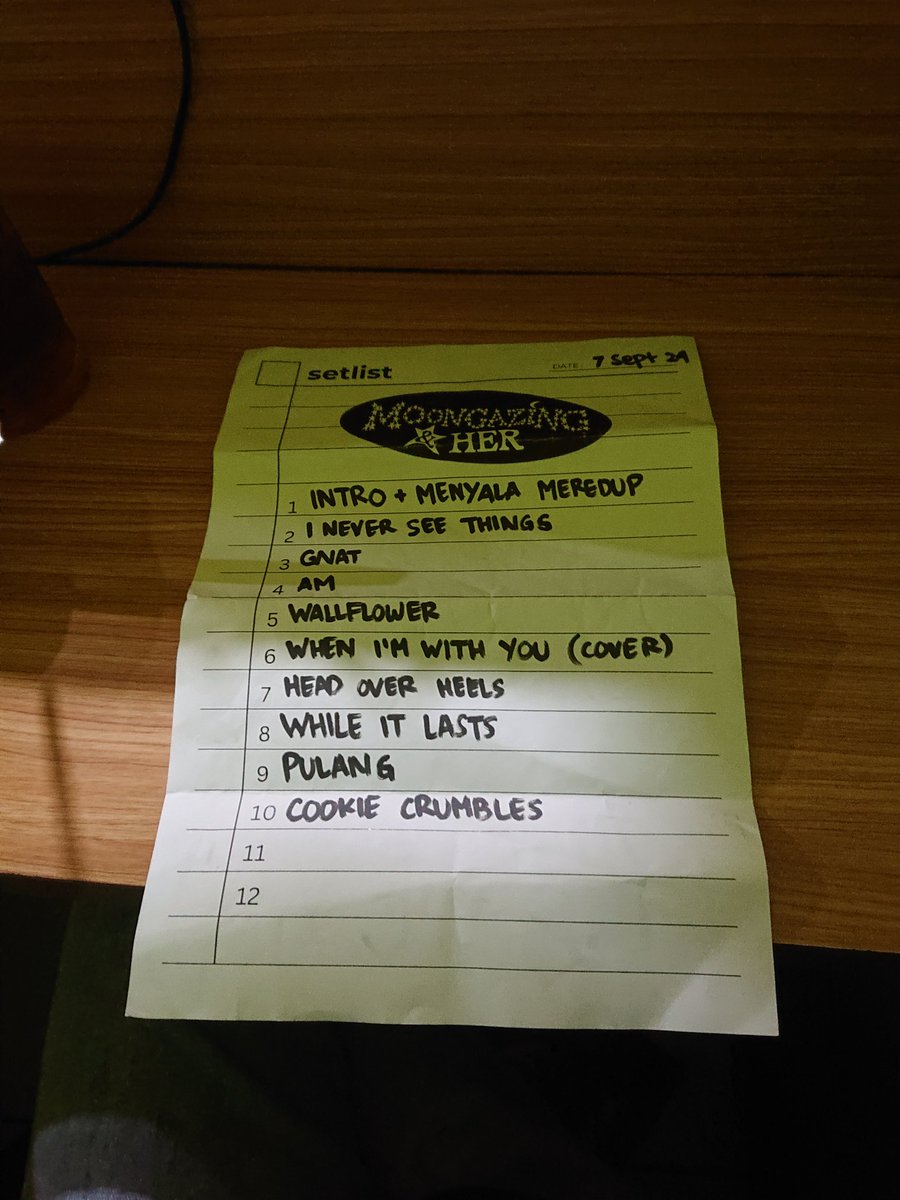 setlist
DATE 7 Sept 24
MOONGAZING
& HER
1 INTRO + MENYALA MEREDUP
2 I NEVER SEE THINGS
3 GNAT
4 AM
5 WALLFLOWER
6 WHEN I'M WITH YOU (COVER)
7 HEAD OVER HEELS
8 WHILE IT LASTS
9 PULANG
10 COOKIE CRUMBLES
11
12